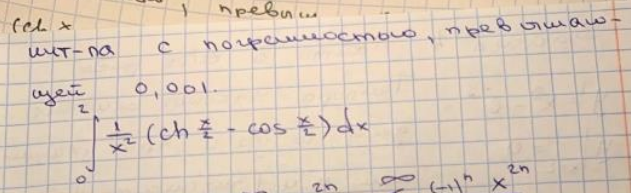 (ch x 1 превыш
инт-ла с погрешностью, превышаю-
щей 0,001.
∫₀² 1/x² (ch x/2 - cos x/2) dx
2n ∞ (-1)ⁿ x²ⁿ